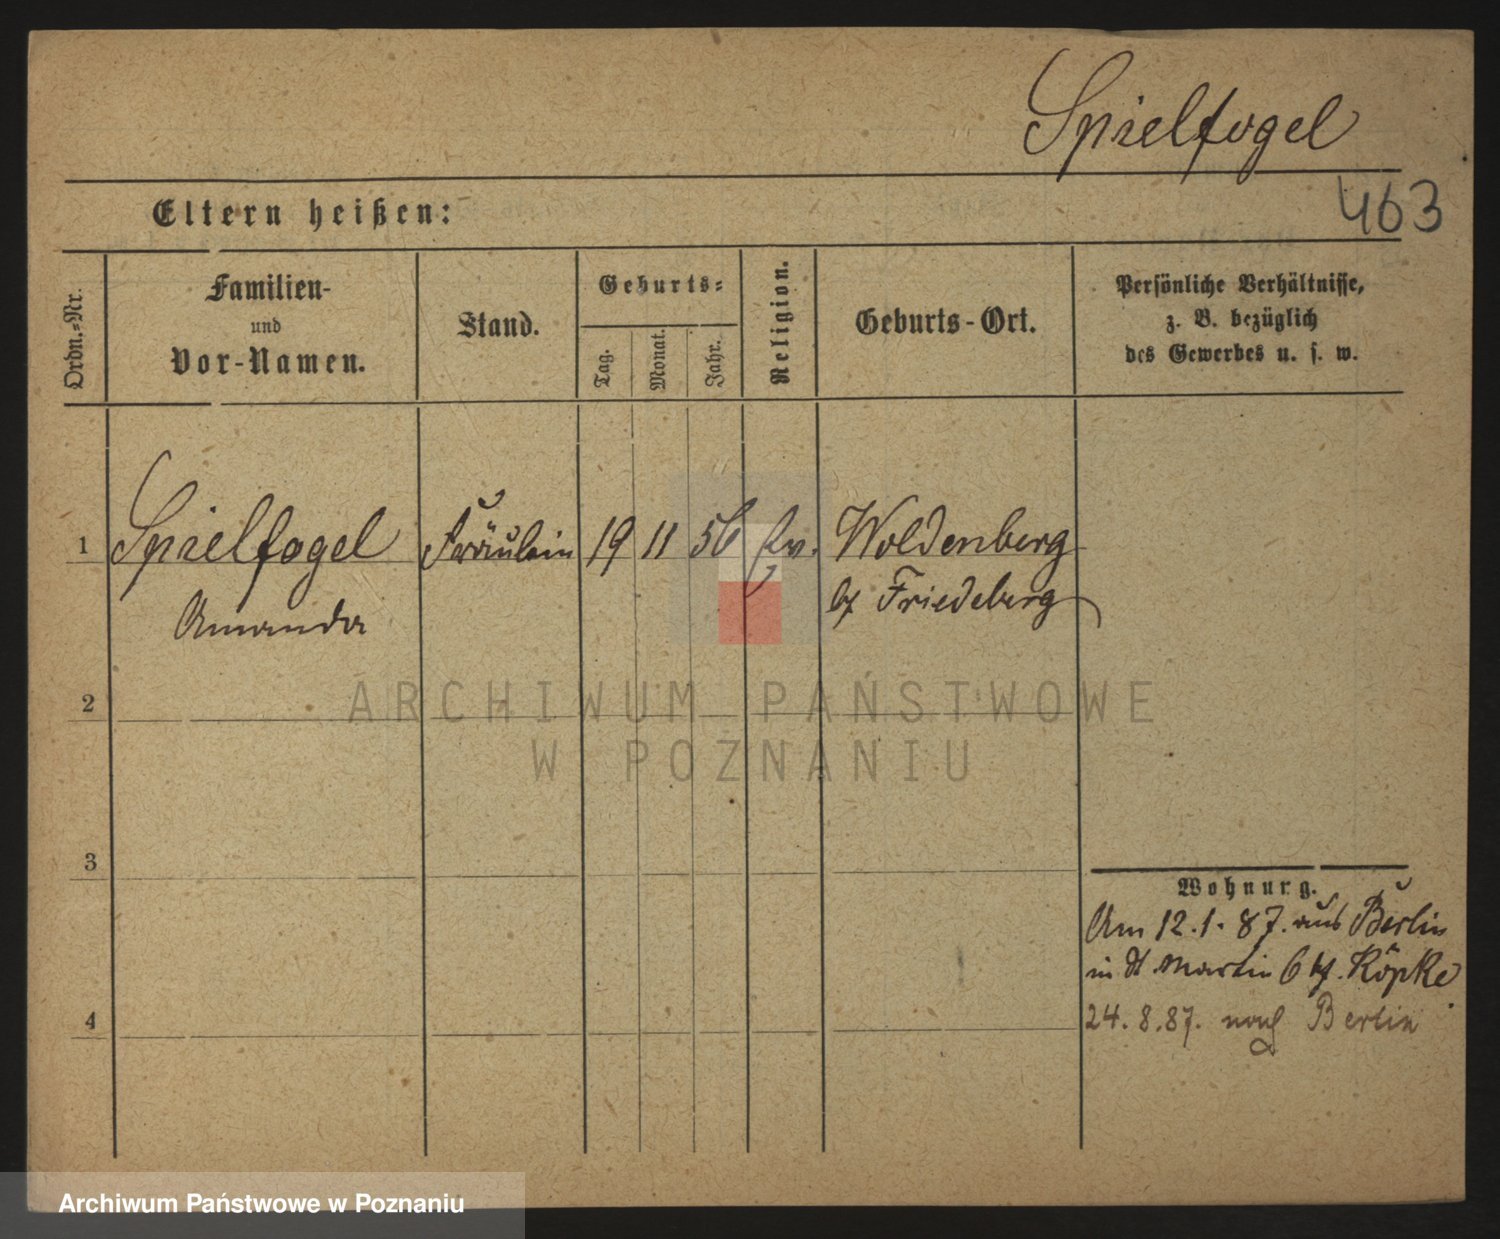 Spielfogel
463
Eltern heißen:
Ordn.-Nr.
Familien-
und
Vor-Namen.
Stand.
Geburts-
Tag.
Monat.
Jahr.
Religion.
Geburts-Ort.
Persönliche Verhältnisse,
z. B. bezüglich
des Gewerbes u. s. w.
1 Spielfogel Fräulein 19 11 56 Ev. Woldenberg
Amanda b/ Friedeberg
2
ARCHIWUM PAŃSTWOWE
W POZNANIU
3
Wohnung.
Am 12.1.87. aus Berlin
in St Martin 6 b/. Köpke
4
24.8.87. nach Berlin
Archiwum Państwowe w Poznaniu